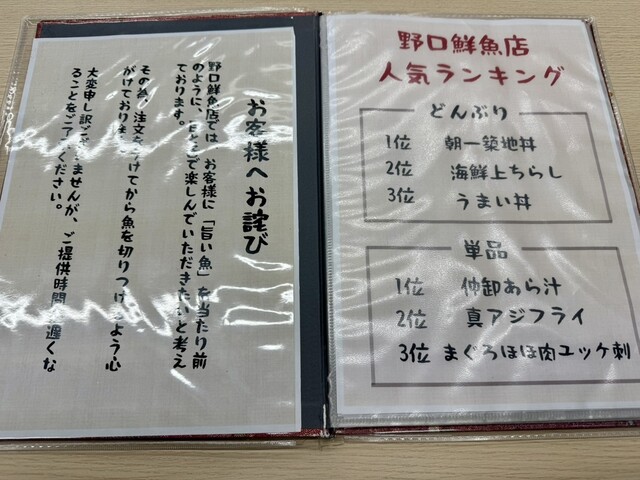 お客様へお詫び
野口鮮魚店では、お客様に「旨い魚」を当たり前
のように、 で楽しんでいただきたいと考え
ております。
その為、注文を けてから魚を切りつけ よう心
がけておりま
大変申し訳ご ませんが、ご提供時間 遅くな
ることをご了 ください。
野口鮮魚店
人気ランキング
どんぶり
1位 朝一築地丼
2位 海鮮上ちらし
3位 うまい丼
単品
1位 仲卸あら汁
2位 真アジフライ
3位 まぐろほほ肉ユッケ刺